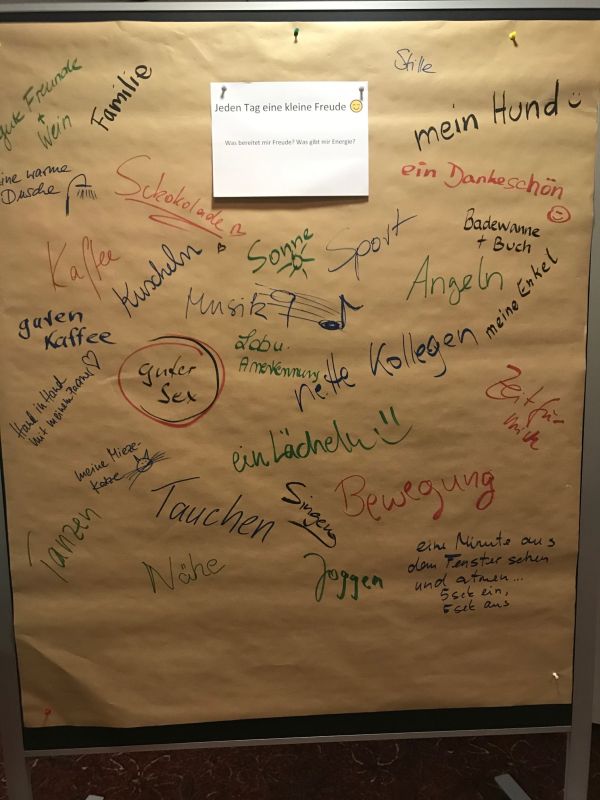 Stille
gute Freunde
+
Wein
Familie
Jeden Tag eine kleine Freude 😊
Was bereitet mir Freude? Was gibt mir Energie?
mein Hund
eine warme
Dusche
Schokolade
ein Dankeschön
Badewanne
+ Buch
Kaffee
Kuscheln
Sonne
Sport
Angeln
meine Enkel
Musik
guten
Kaffee
Lob u.
Anerkennung
nette Kollegen
guter
Sex
Hand in Hand
mit meinem
Zeit für
mich
ein Lächeln
meine Mieze-
katze
Tauchen
Singen
Bewegung
Tanzen
Nähe
Joggen
eine Minute aus
dem Fenster sehen
und atmen...
5sek ein,
5sek aus